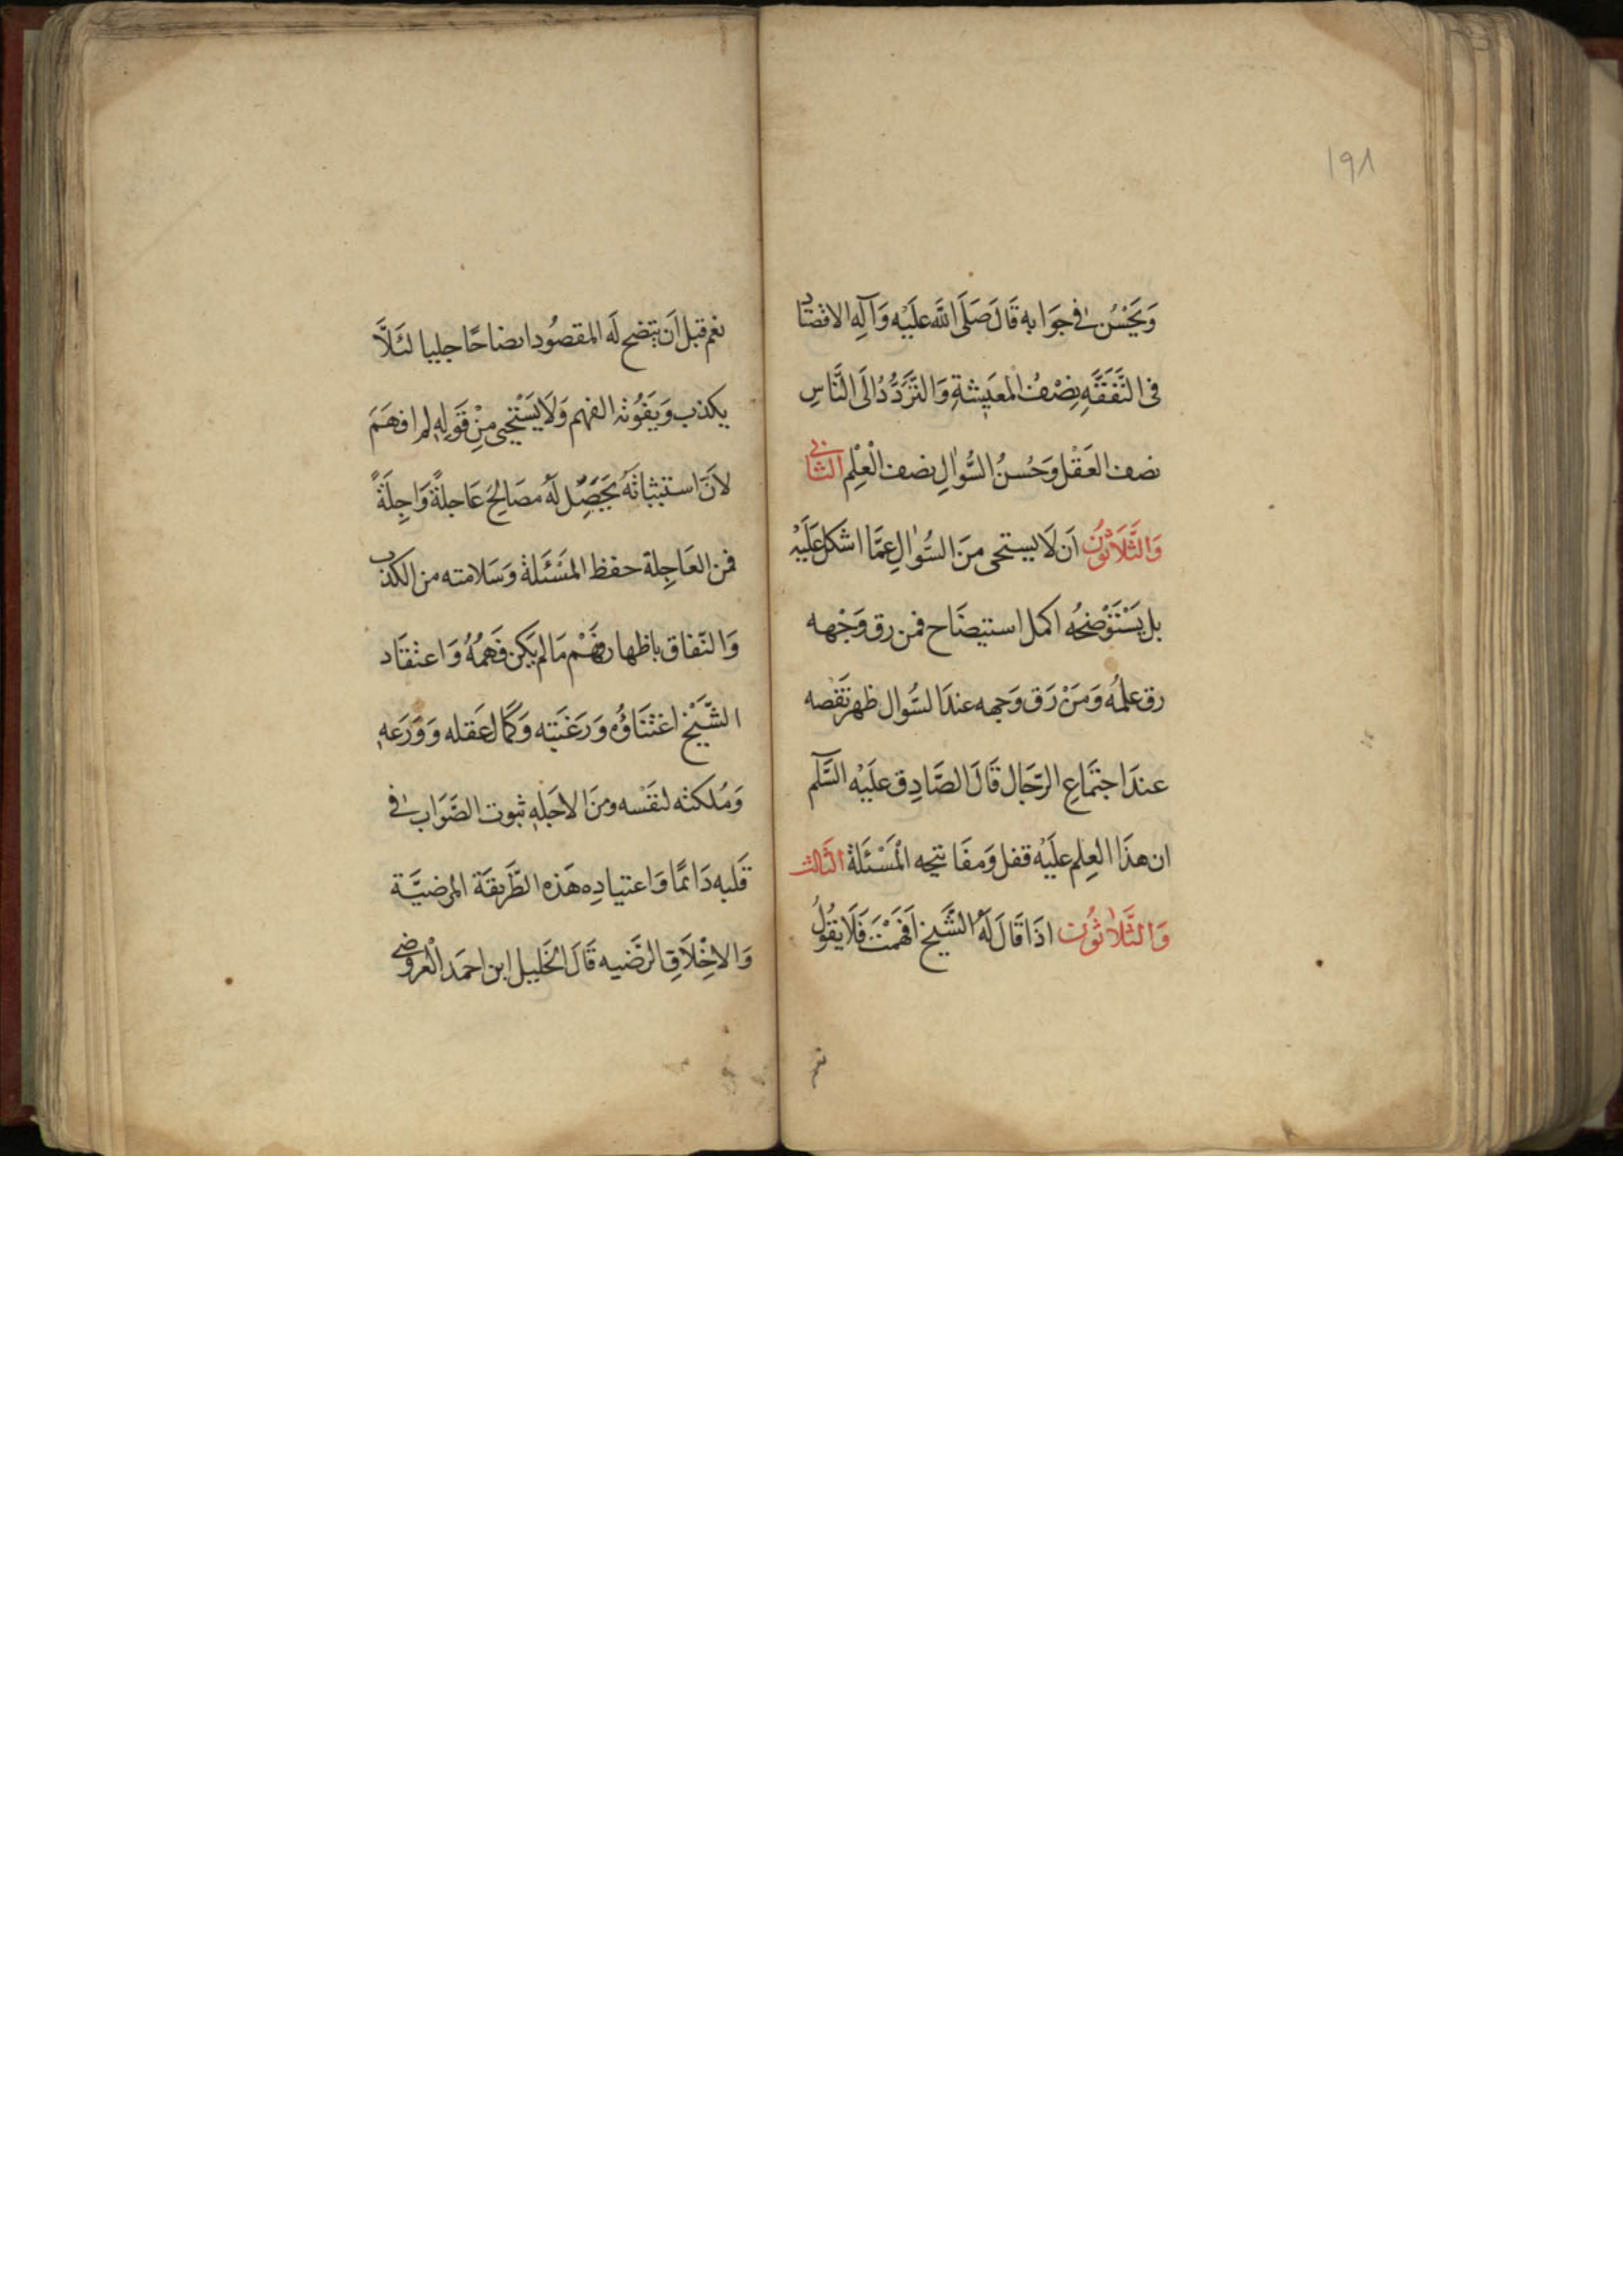 ١٩٨
وَيَحْسُنَ فِي جَوَابِهِ قَالَ صَلَّى اللَّهُ عَلَيْهِ وَآلِهِ الاقتصاد
فى النَّفَقَةِ نِصْفُ الْمَعِيشَةِ وَالتَّرَدُّدُ اِلَى النَّاسِ
نصف العَقْلِ وَحُسنُ السُّوٰالِ نصف الْعِلْمِ الثانى
وَالثَّلَاثُونَ اَن لَا يستحى مِنَ السُّوٰالِ عَمَّا اشكل عَلَيْهِ
بل يَسْتَوْضِحُه اكمل استيضَاح فمن رق وَجْهه
رق علمُه وَمَنْ رَق وَجهه عندَ السُّوال ظهر نَقْصه
عندَ اجتمَاعِ الرّجَال قَالَ الصَّادِق عَلَيْه السَّلَم
ان هذَا العِلم عَلَيْه قفل وَمفَاتيحه الْمَسْئَلة الثَّالث
وَالثَّلَاثُون اذَا قَالَ لَهُ الشَّيخ اَفَهمْتَ فَلَا يَقُولُ
نعم
نعم قبل اَن يتضح لَه المقصُود ايضاحًا جليا لئَلَّا
يكذب وَيَفُوته الفهم وَلَا يَسْتَحْيى مِنْ قَوْلِهِ لم افهَمَ
لانَّ استثباتَهُ يَحَصِّل لَهُ مصَالِحَ عَاجلةً وَاجِلَةً
فمن العَاجِلة حفظ المَسْئَلة وَسَلامته من الكذب
وَالنّفاق باظهار فَهْم مَا لم يَكن فَهِمُهُ وَاعتقَاد
الشَّيْخ اعْتنَاؤُه وَرَغبَته وَكمَال عَقله وَوَرَعهِ
وَمُلكته لنفْسه ومنَ الاجَلهِ ثبوت الصَّوَاب فى
قَلبه دَائمًا وَاعتيادِه هَذه الطَّريقَة المرضيَّة
وَالاخْلَاقِ الرَّضيه قَالَ الخَليل ابن احمَد الْعروضى